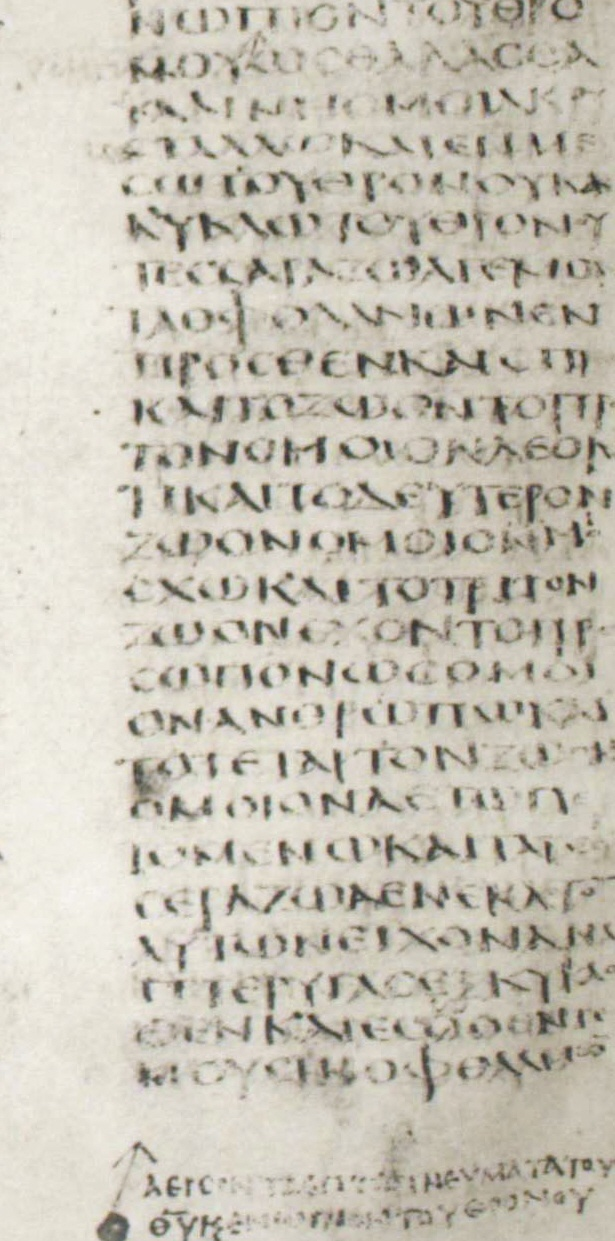 ΝΩΠΙΟΝΤΟΥΘΡΟ
ΝΟΥΩΣΘΑΛΑϹϹΑ
ΥΑΛΙΝΗΟΜΟΙΑΚΡΥ
ϹΤΑΛΛΩΚΑΙΕΝΜΕ
ϹΩΤΟΥΘΡΟΝΟΥΚΑΙ
ΚΥΚΛΩΤΟΥΘΡΟΝΟΥ
ΤΕϹϹΑΡΑΖΩΑΓΕΜΟΝ
ΤΑΟΦΘΑΛΜΩΝΕΝ
ΠΡΟϹΘΕΝΚΑΙΟΠΙ
ΚΑΙΤΟΖΩΟΝΤΟΠΡ
ΤΟΝΟΜΟΙΟΝΛΕΟΝ
ΤΙΚΑΙΤΟΔΕΥΤΕΡΟΝ
ΖΩΟΝΟΜΟΙΟΝΜ
ΟϹΧΩΚΑΙΤΟΤΡΙΤΟΝ
ΖΩΟΝΕΧΟΝΤΟΠΡΟ
ϹΩΠΟΝΩϹΟΜΟΙ
ΟΝΑΝΘΡΩΠΩΚΑΙ
ΤΟΤΕΤΑΡΤΟΝΖΩΟΝ
ΟΜΟΙΟΝΑΕΤΩΠΕ
ΤΟΜΕΝΩΚΑΙΤΑΤΕϹ
ϹΕΡΑΖΩΑΕΝΕΚΑϹΤΟ
ΑΥΤΩΝΕΙΧΟΝΑΝΑ
ΠΤΕΡΥΓΑϹΕΞΚΥΚΛΟ
ΘΕΝΚΑΙΕϹΩΘΕΝΓΕ
ΜΟΥϹΙΝΟΦΘΑΛΜΩ
ΑΕΙϹΙΝΤΑΕΠΤΑΠΝΕΥΜΑΤΑΤΟΥ
ΘΥΚΕΝΩΠΙΟΝΤΟΥΘΡΟΝΟΥ